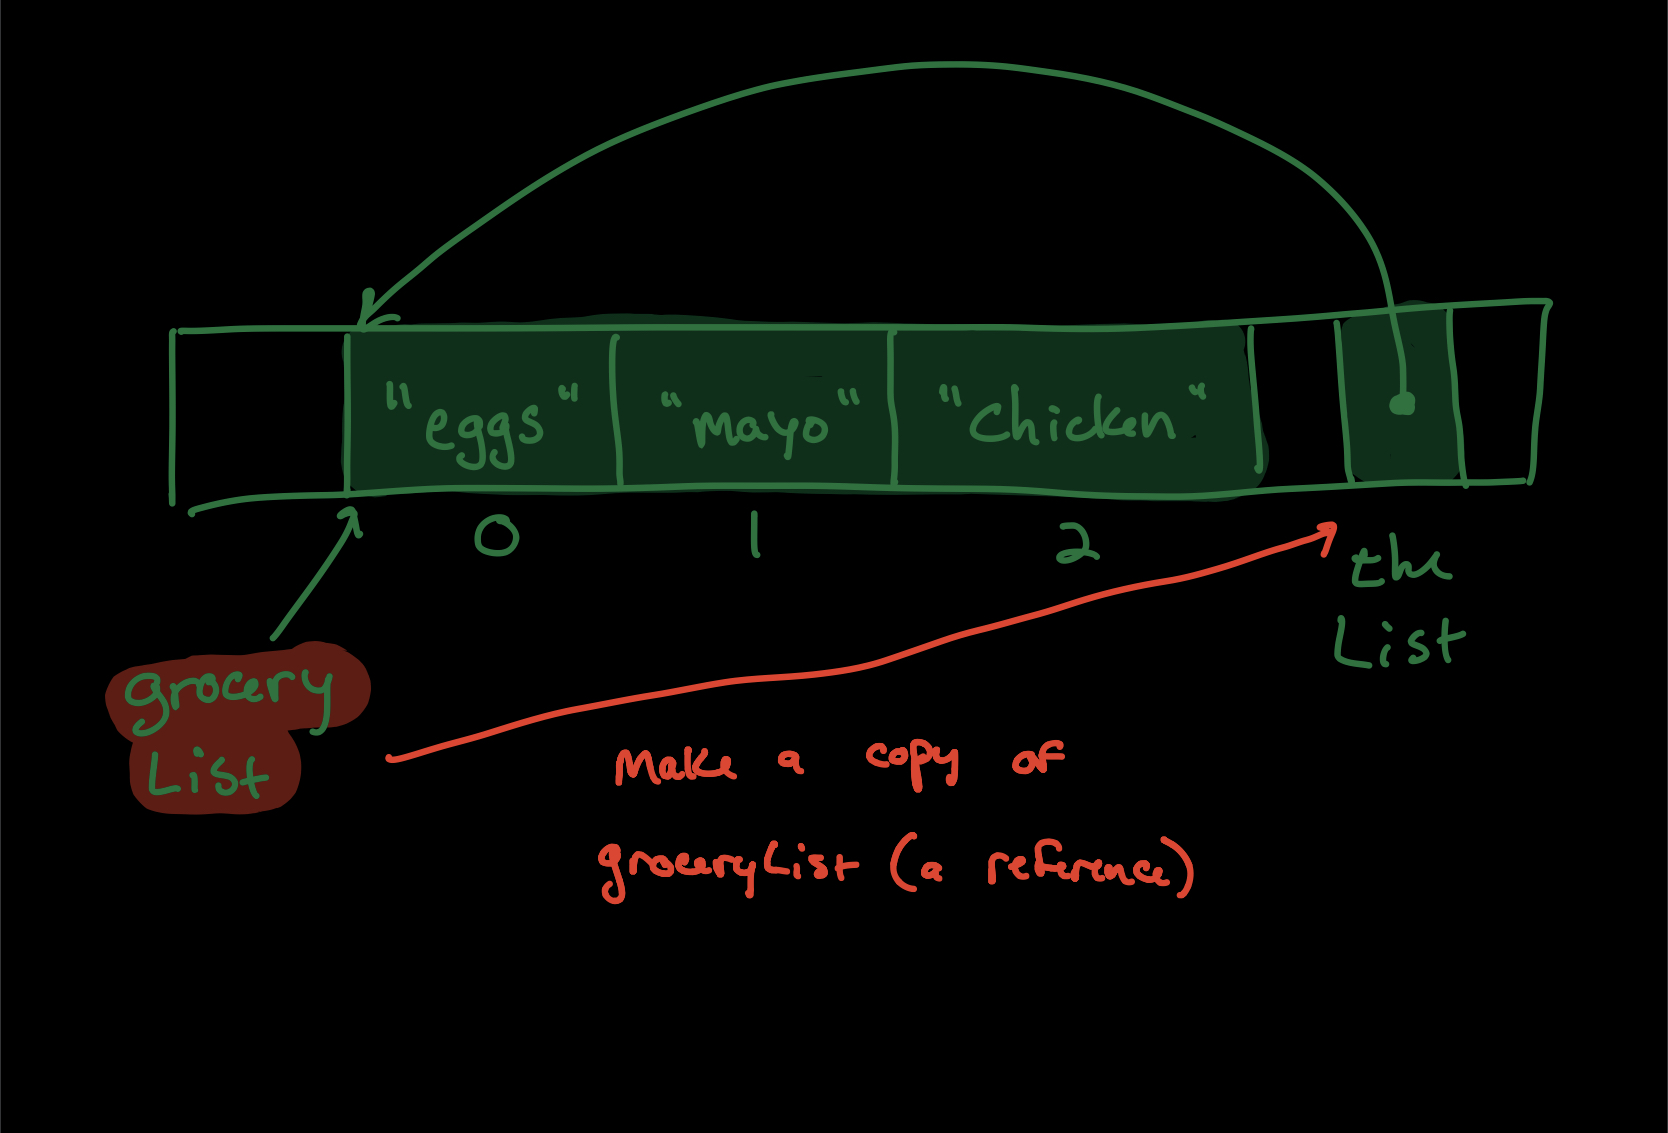 "eggs" "mayo" "Chicken"
0 1 2
the
List
grocery
List
Make a copy of
groceryList (a reference)